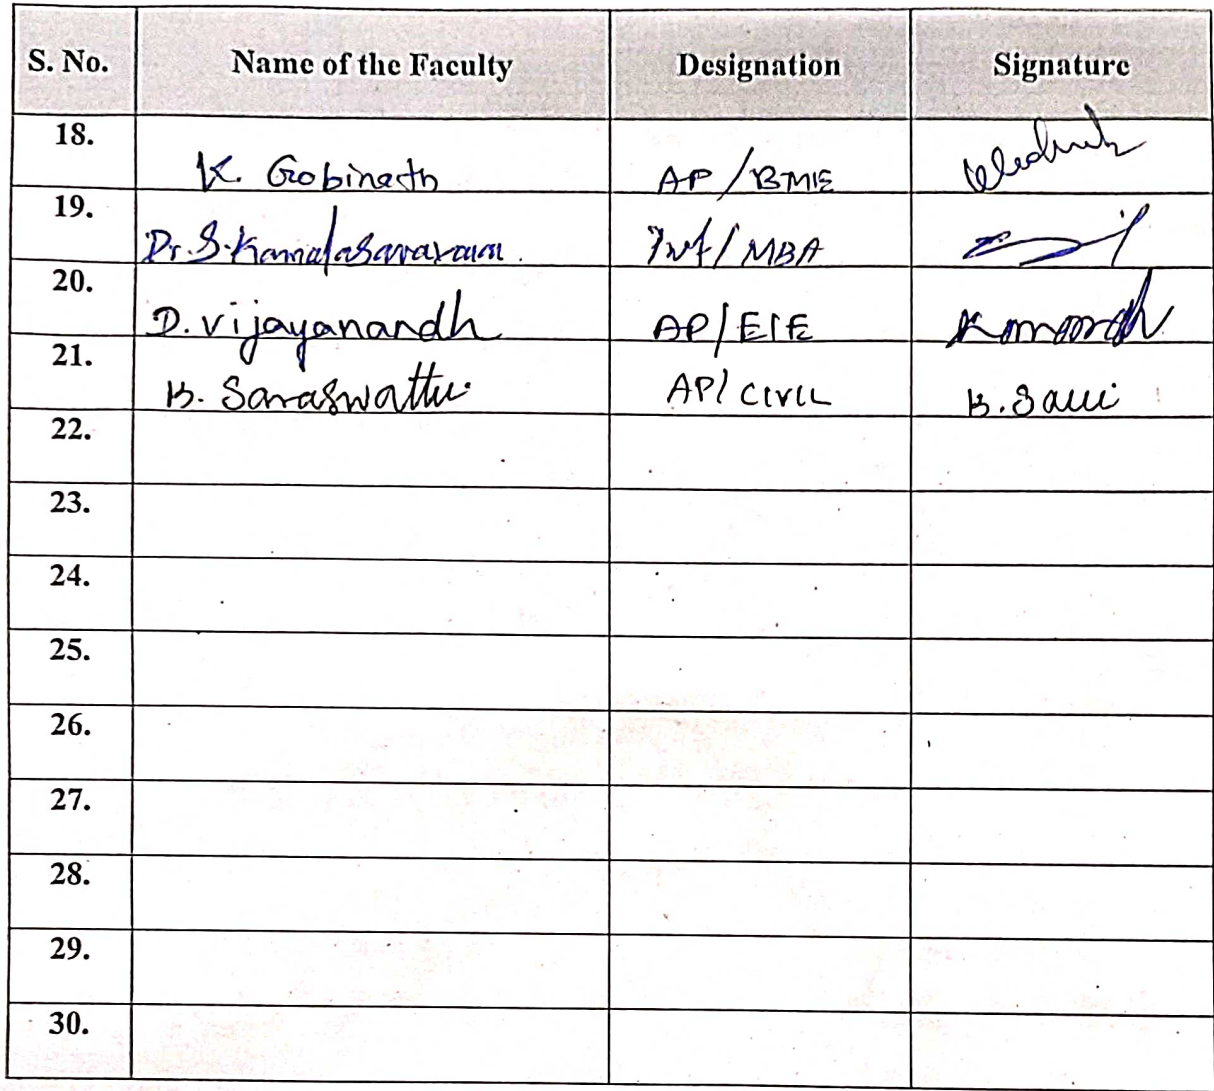 S. No. Name of the Faculty Designation Signature
18. K. Gobinath AP/BME
19. Dr. S. Kamalasaravanan Prof/MBA
20. D. Vijayanandh AP/EIE
21. B. Saraswathi AP/CIVIL B. Sarri
22.
23.
24.
25.
26.
27.
28.
29.
30.